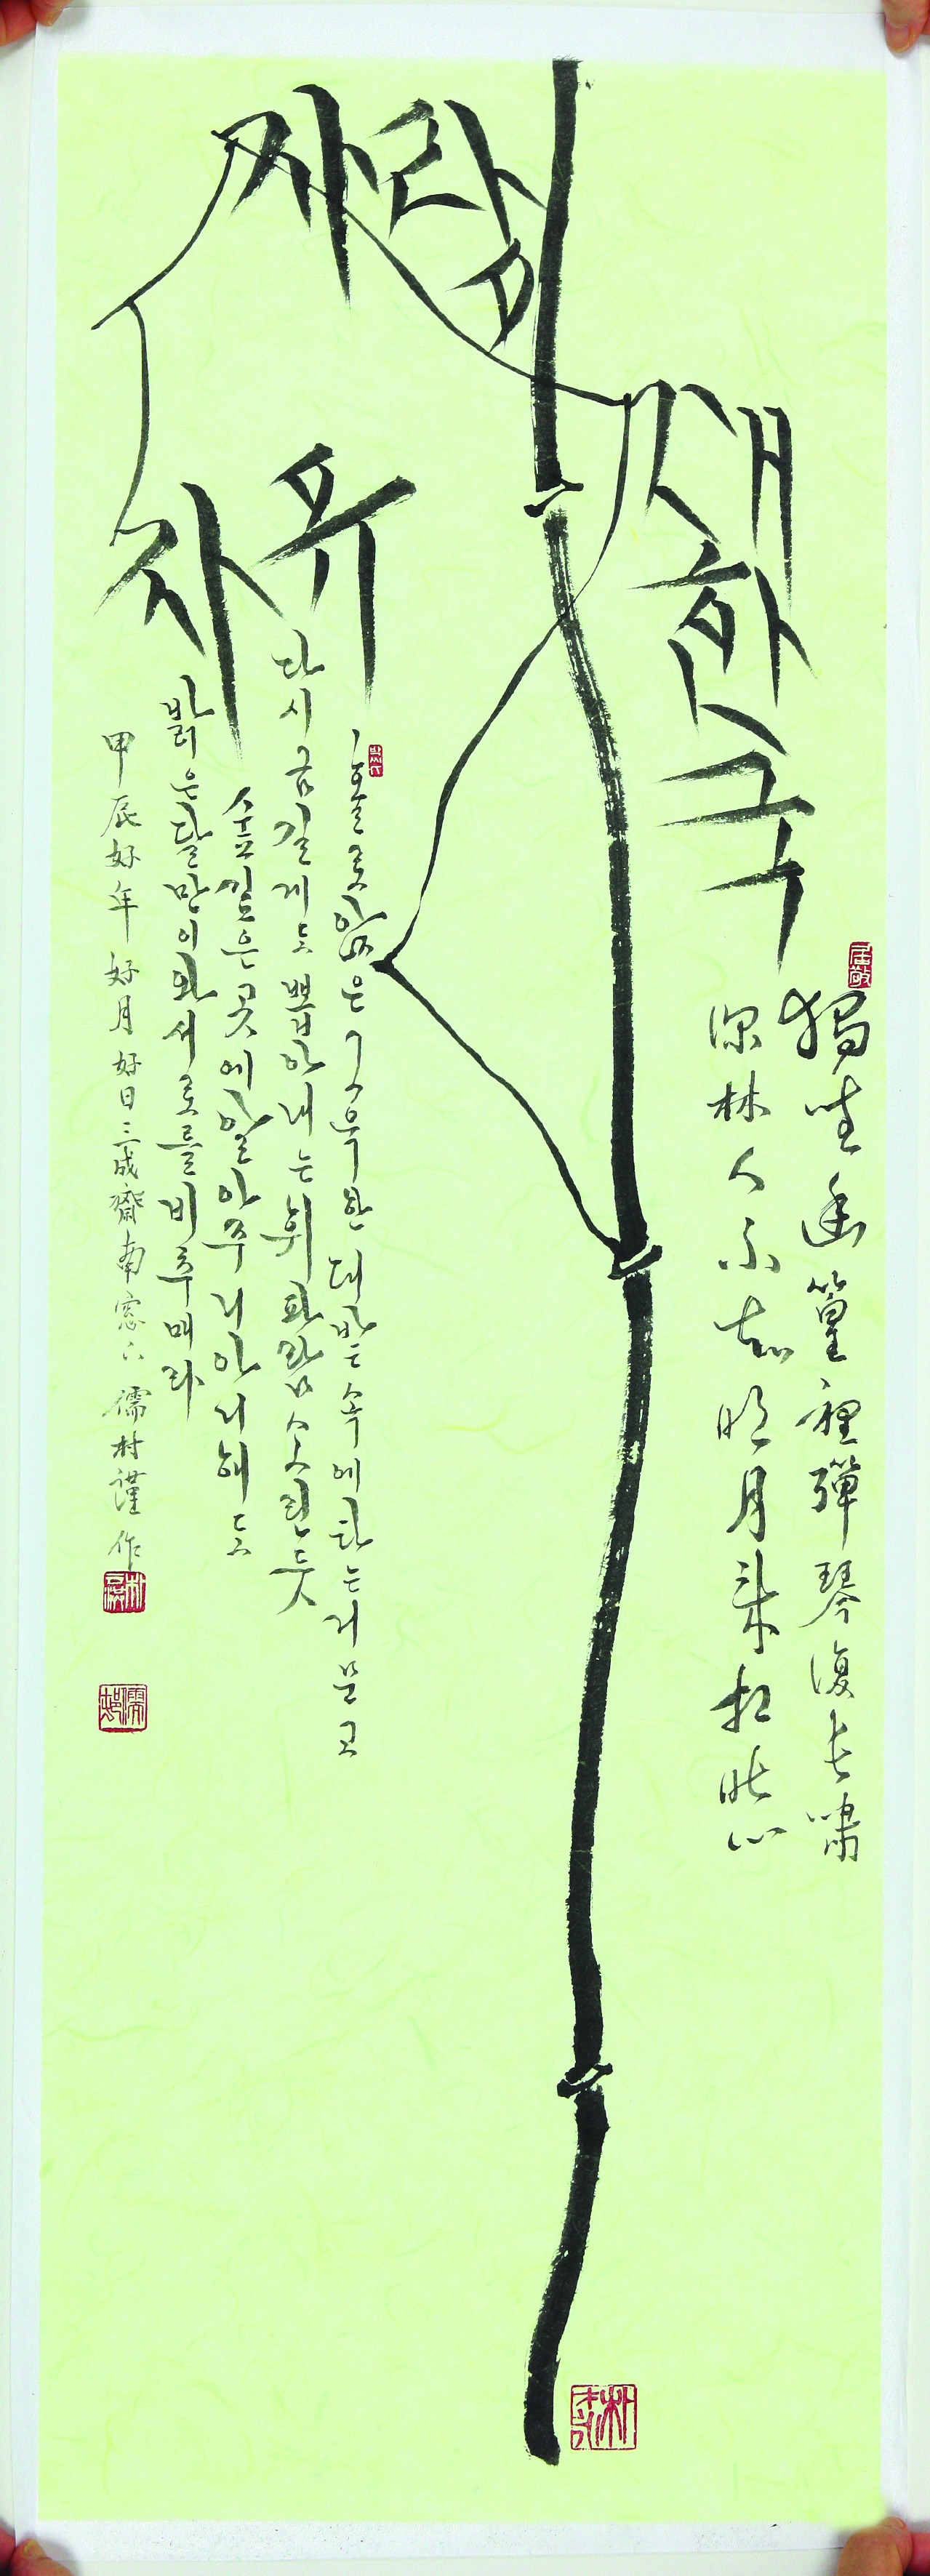 새한국
사람
자유
獨坐幽篁裡彈琴復長嘯
深林人不知明月來相照
홀로앉은그윽한대밭속에타는거문고
다시금길게도뽑아내는휘파람소린듯
숲깊은곳에알아주리아니해도
밝은달만이와서로를비추매라
甲辰好年好月好日三成齋南窓下儒村謹作
居敬
儒村